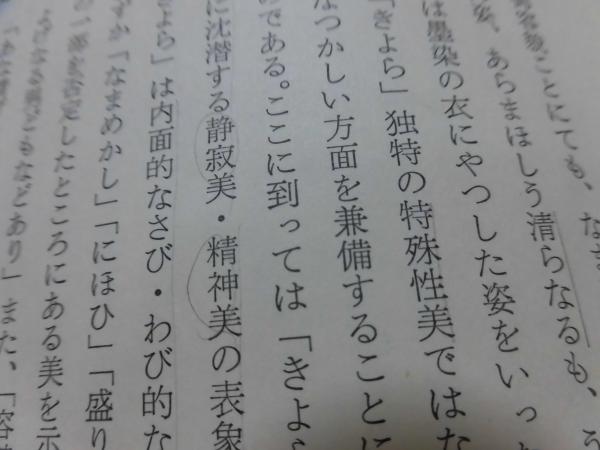 ことにても、なま
あらまほしう清らなるも、う
は墨染の衣にやつした姿をいっ
「きよら」独特の特殊性美ではな
なつかしい方面を兼備することに
である。ここに到っては「きよら
に沈潜する静寂美・精神美の表象
よら」は内面的なさび・わび的な
ずか「なまめかし」「にほひ」「盛り
したところにある美を示
などあり」また、「容